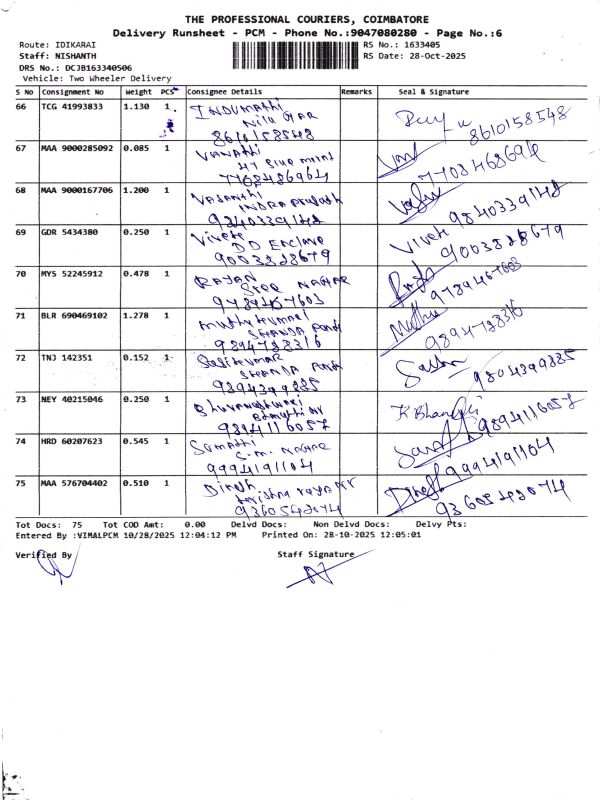 THE PROFESSIONAL COURIERS, COIMBATORE
Delivery Runsheet - PCM - Phone No.:9047080280 - Page No.:6
Route: IDIKARAI RS No.: 1633405
Staff: NISHANTH RS Date: 28-Oct-2025
DRS No.: DCJB163340506
Vehicle: Two Wheeler Delivery
S No Consignment No Weight PCS Consignee Details Remarks Seal & Signature
66 TCG 41993833 1.130 1 INDUMATHI
8610158548 8610158548
67 MAA 9000285092 0.085 1 VANATHI
7708486964 7708468696
68 MAA 9000167706 1.200 1 VASANTHI
INDRA
9840339148 9840339148
69 GDR 5434380 0.250 1 Vivek Vivek
DD Enclave
9003828679 9003828679
70 MYS 52245912 0.478 1 RAJAN
NAGAR
9789467603 9789467603
71 BLR 690469102 1.278 1 Muthukumar Muthu
9894728316 9894728316
72 TNJ 142351 0.152 1 Sasikumar
9894399885 9804399885
73 NEY 40215046 0.250 1 Bhuvaneshwari
9894116057 9894116057
74 HRD 60207623 0.545 1 Sumathi
S.M. NAGAR
9994191104 9994191104
75 MAA 576704402 0.510 1 Dinesh Dinesh
9360542074 9360542074
Tot Docs: 75 Tot COD Amt: 0.00 Delvd Docs: Non Delvd Docs: Delvy Pts:
Entered By :VIMALPCM 10/28/2025 12:04:12 PM Printed On: 28-10-2025 12:05:01
Verified By Staff Signature